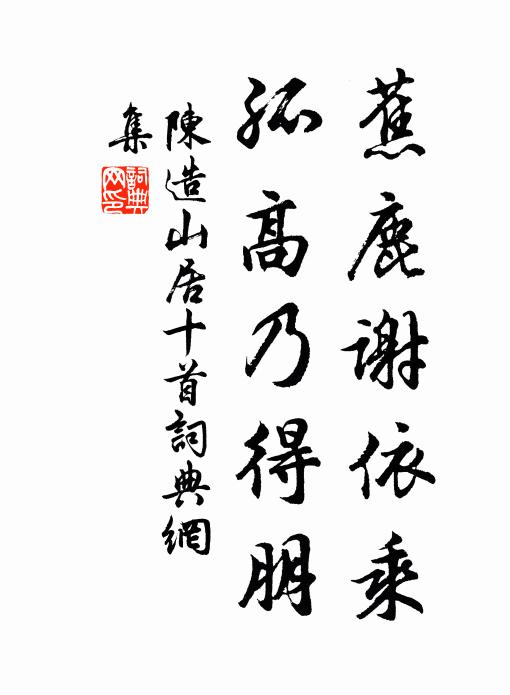 蕉鹿谢依乘
孤高乃得朋
陳造山居十首詞典網
集
詞典网印